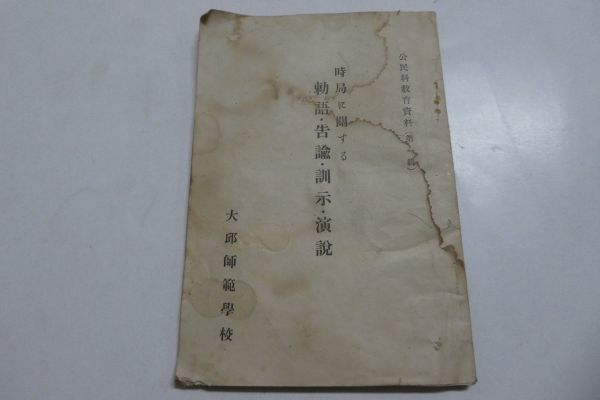 公民科教育資料(第 輯)
時局に關する
勅語・告諭・訓示・演說
大邱師範學校